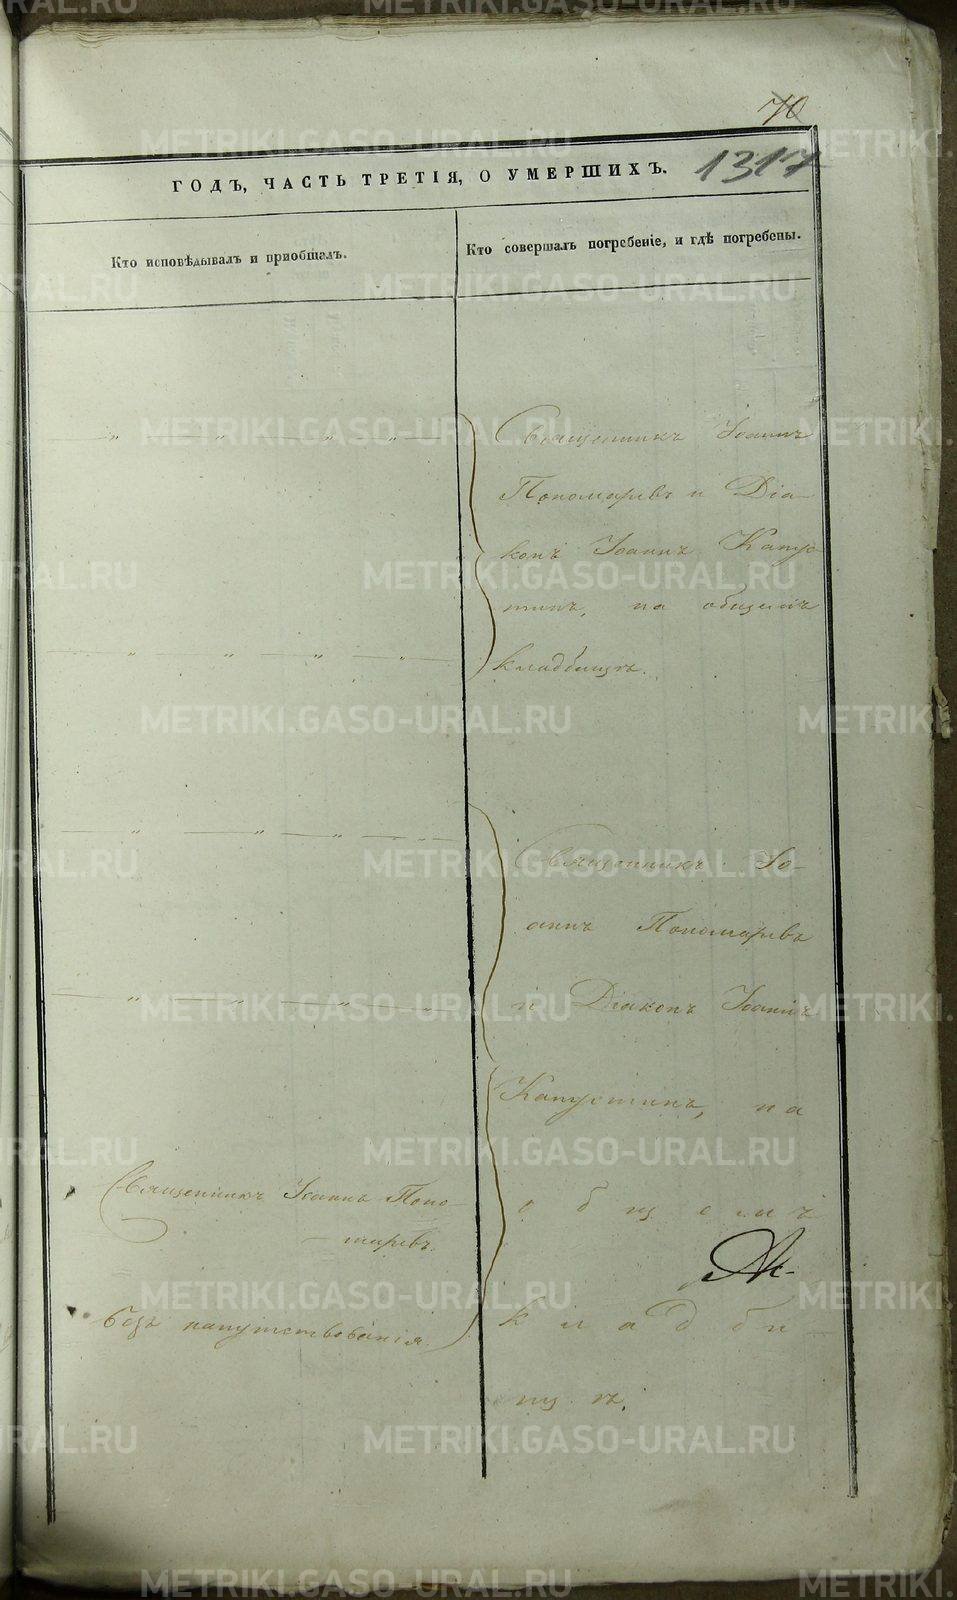 70
1317
ГОДЪ, ЧАСТЬ ТРЕТІЯ, О УМЕРШИХЪ.
Кто исповѣдывалъ и пріобщалъ.
Кто совершалъ погребеніе, и гдѣ погребены.
Священникъ Іоаннъ
Пономаревъ и Діа-
конъ Іоаннъ Капус-
тинъ, на общемъ
кладбищѣ.
Священникъ Іо-
аннъ Пономаревъ
и Діаконъ Іоаннъ
Капустинъ, на
общемъ
кладби-
щѣ.
Священникъ Іоаннъ Поно-
маревъ.
безъ напутствованія.
METRIKI.GASO-URAL.RU